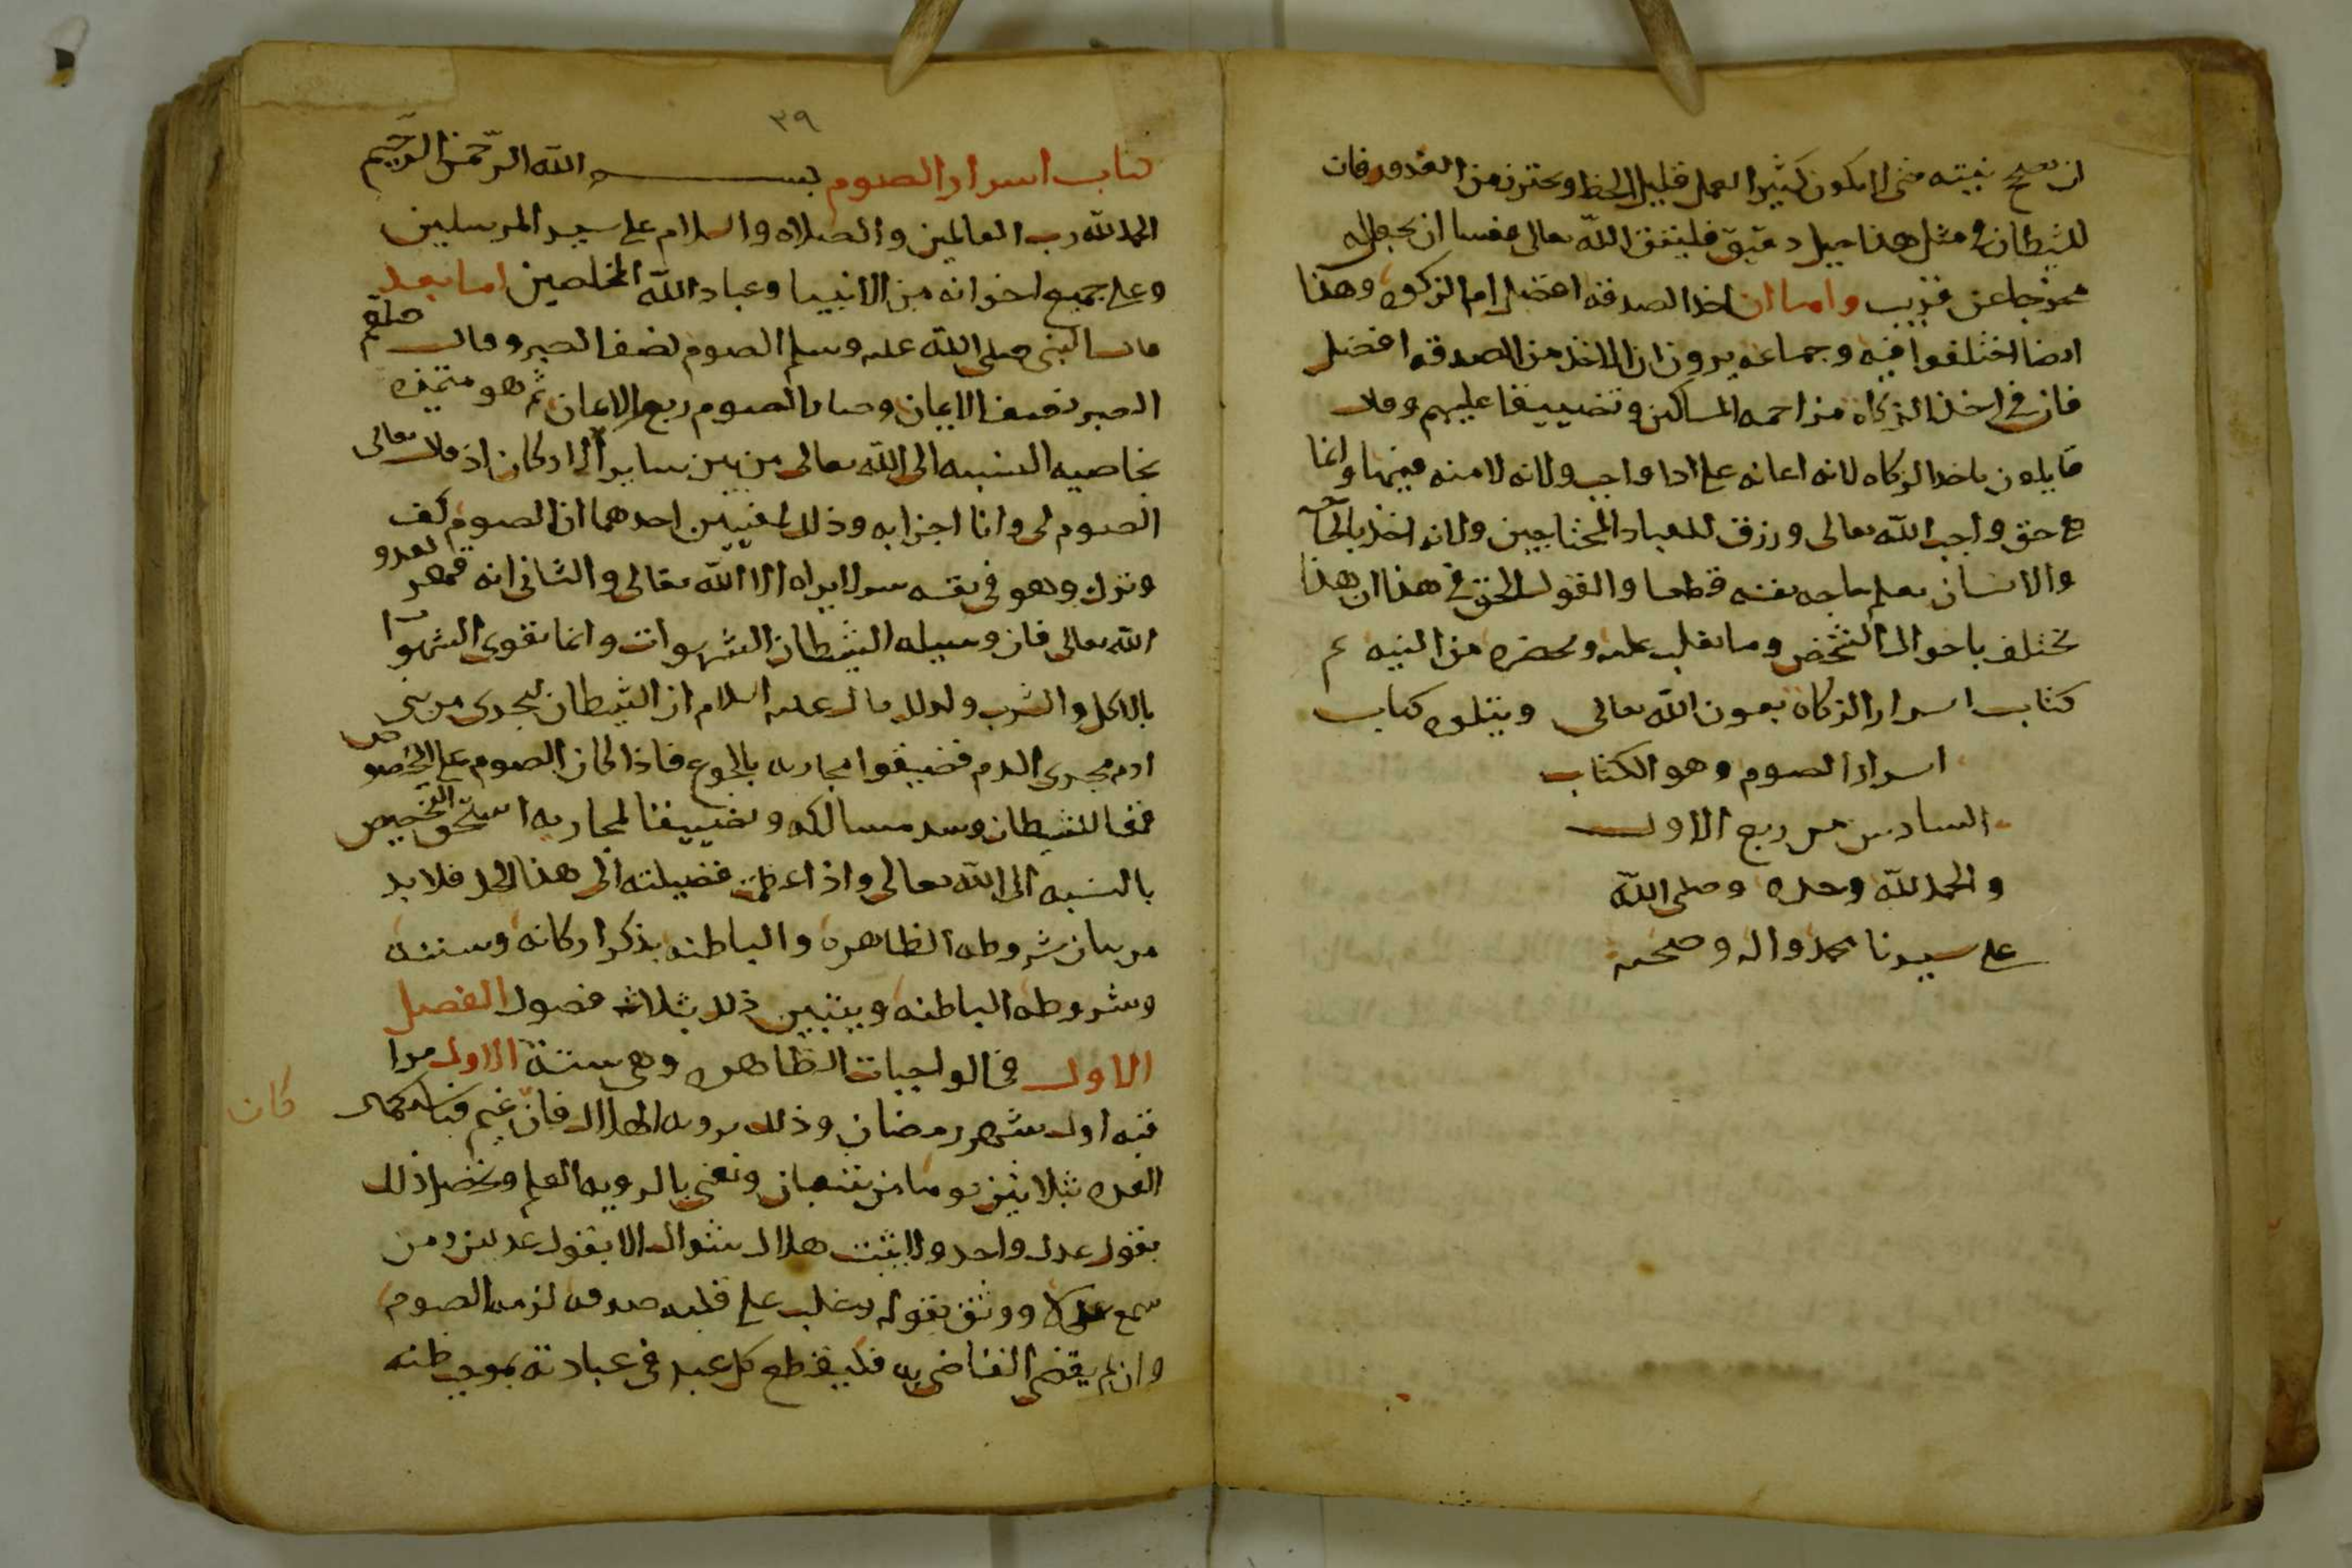 ان تصح نيته حتى لا يكون كثير العمل قليل الحظ ويحترز من الغرور فان
للشيطان في مثل هذا حيل دقيق فليتق الله تعالى عسا ان يجعل له
مخرجا عن قريب واما ان اخذ الصدقه افضل ام الزكوه وهذا
ايضا اختلفوا فيه وجماعه يرون ان الاخذ من الصدقه افضل
فان في اخذ الزكاة مزاحمه المساكين وتضييقا عليهم وقال
قايلون ياخذ الزكاه لانه اعانه على اداء واجب ولانه لا منه فيها وانما
هو حق واجب لله تعالى ورزق للعباد المحتاجين ولانه اخذ بالحاجة
والانسان يعلم حاجه نفسه قطعا والقول الحق في هذا ان هذا
تختلف باحوال الشخص وما يغلب عليه ويحضره من النيه تم
كتاب اسرار الزكاة بعون الله تعالى ويتلوه كتاب
اسرار الصوم وهو الكتاب
السادس من ربع الاول
والحمد لله وحده وصلى الله
على سيدنا محمد واله وصحبه
٣٩
كتاب اسرار الصوم بسم الله الرحمن الرحيم
الحمد لله رب العالمين والصلاه والسلام على سيد المرسلين
وعلى جميع اخوانه من الانبيا وعباد الله المخلصين اما بعد
قال النبي صلى الله عليه وسلم الصوم نصف الصبر وقال صلعم
الصبر نصف الايمان وصار الصوم ربع الايمان ثم هو متميزه
بخاصيه النسبه الى الله تعالى من بين ساير الاركان اذ قال تعالى
الصوم لي وانا اجزا به وذلك لمعنيين احدهما ان الصوم كف
وترك وهو في نفسه سر لا يراه الا الله تعالى والثاني انه قهر لعدو
الله تعالى فان وسيله الشيطان الشهوات وانما تقوى الشهوات
بالاكل والشرب ولذلك قال عليه السلام ان الشيطان ليجري من بني
ادم مجرى الدم فضيقوا مجاريه بالجوع فاذا كان الصوم على الخصوص
قمعا للشيطان وسد مسالكه وتضييقا لمجاريه استحق التخصيص
بالنسبه الى الله تعالى واذا عظمت فضيلته الى هذا الحد فلا بد
من بيان شروطه الظاهرة والباطنه بذكر اركانه وسننه
وشروطه الباطنه ويتبين ذلك بثلاث فصول الفصل
الاول في الواجبات الظاهره وهي ستة الاول مرا
قبه اول شهر رمضان وذلك برويه الهلال فان غم فباستكمال
كان
العده ثلاثين يوما من شعبان ونعني بالرويه العلم ويحصل ذلك
بقول عدل واحد ولا يثبت هلال شوال الا بقول عدلين ومن
سمع عدلا ووثق بقوله وغلب على قلبه صدقه لزمه الصوم
وان لم يقض القاضي به فليقطع كل عبد في عبادته بموجب ظنه